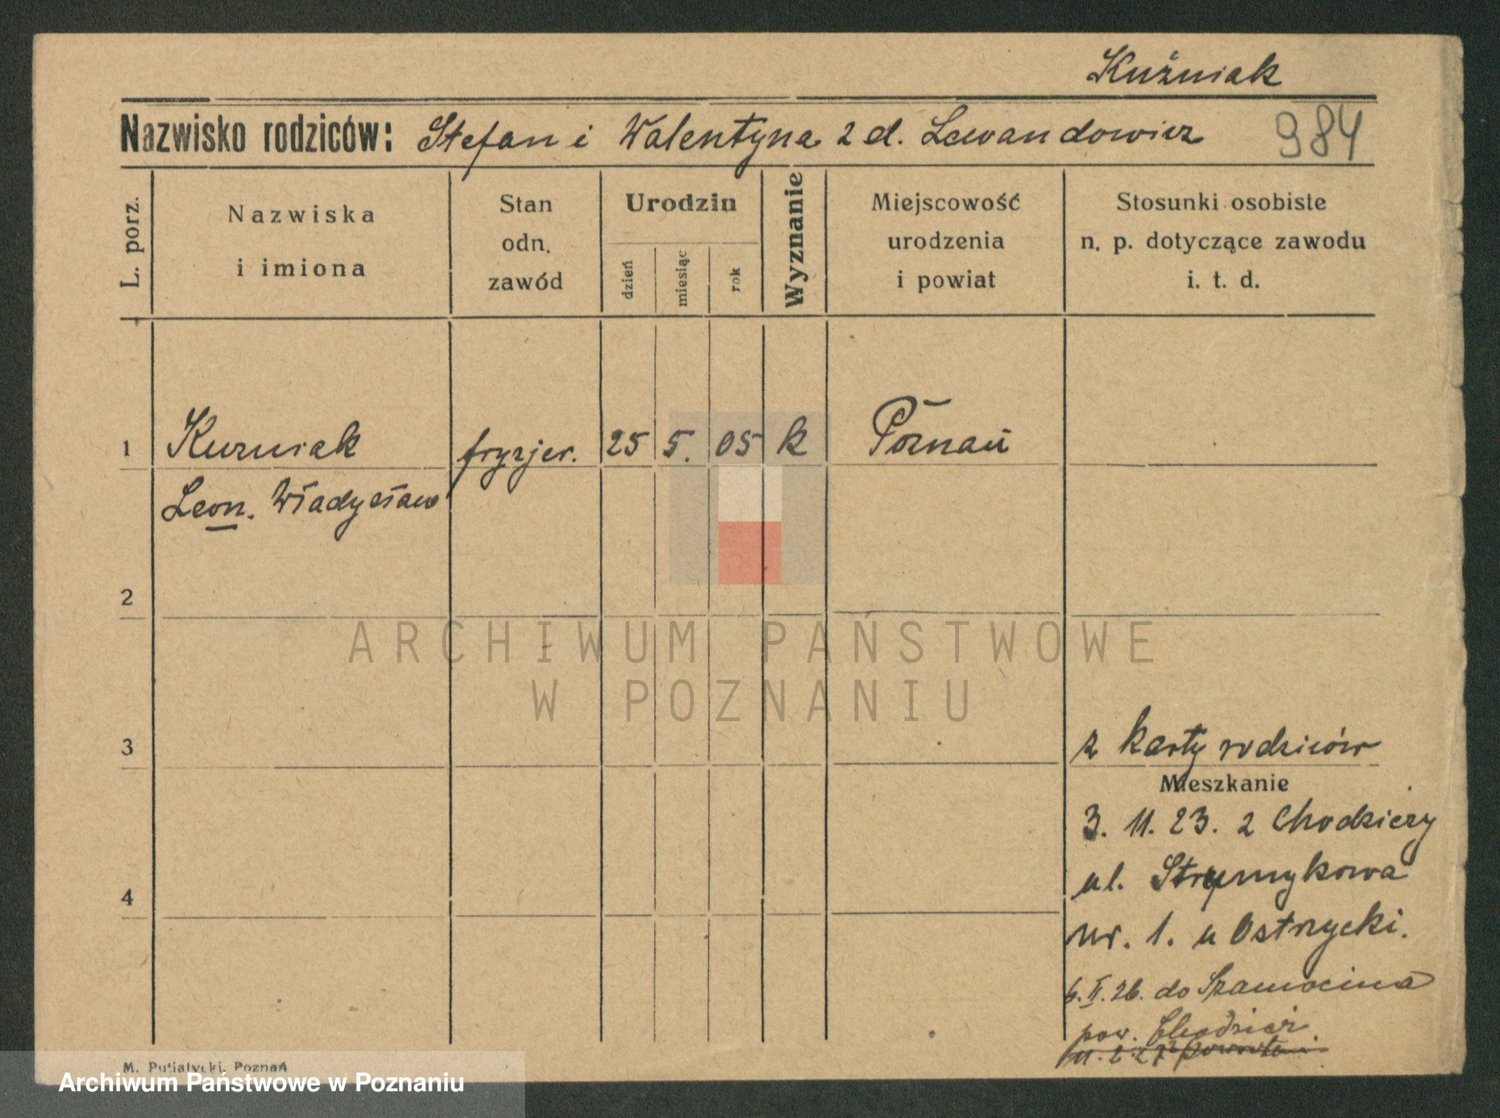 Kuźniak
Nazwisko rodziców: Stefan i Walentyna z d. Lewandowicz 984
L. porz.
Nazwiska
i imiona
Stan
odn.
zawód
Urodzin
dzień
miesiąc
rok
Wyznanie
Miejscowość
urodzenia
i powiat
Stosunki osobiste
n. p. dotyczące zawodu
i. t. d.
1 Kuzniak fryzjer. 25 5. 05 k Poznań
Leon. Władysław
2
ARCHIWUM PAŃSTWOWE
W POZNANIU
3 z karty rodziców
Mieszkanie
3. 11. 23. z Chodzieży
ul. Strumykowa
4
nr. 1. u Ostrzycki.
6. II. 26. do Szamocina
pow. Chodzież
M. Putiatycki, Poznań
Archiwum Państwowe w Poznaniu